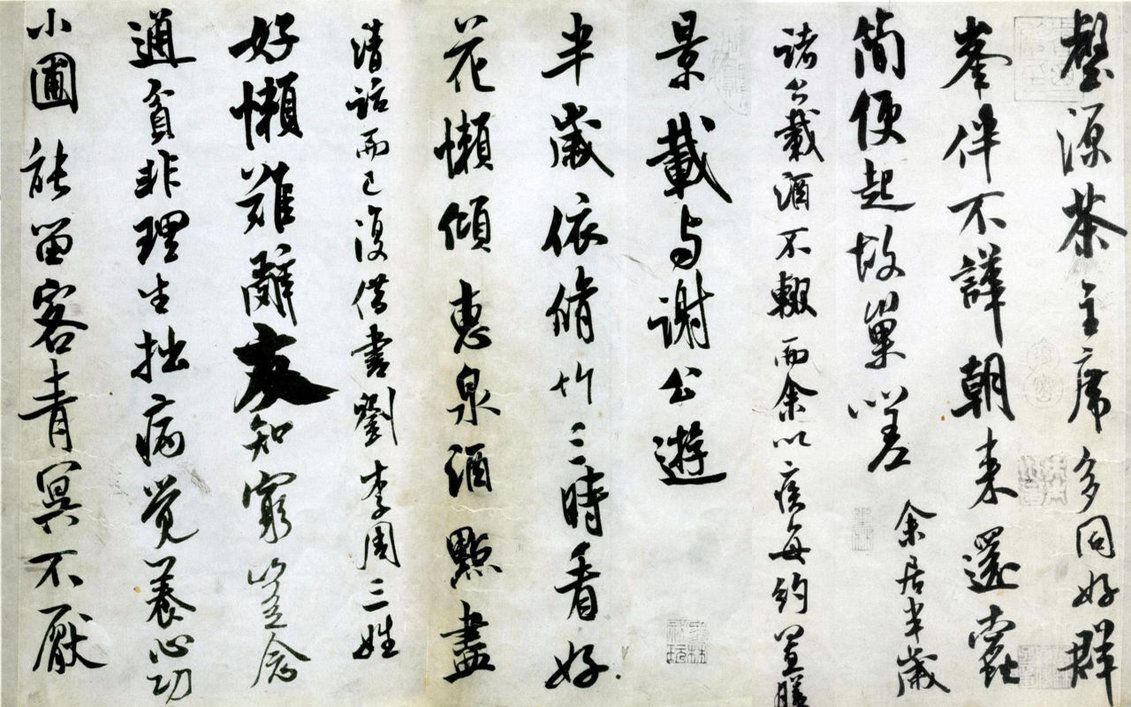 壑源茶主席多同好群
峯伴不譁朝來還蠹
簡便起故巢嗟 余居半歲
諸公載酒不輟而余以疾每約置膳
景載与謝公遊
半歲依脩竹三時看好
花懶傾惠泉酒點盡
清話而已復借書劉李周三姓
好懶難辭友知窮豈念
通貧非理生拙病覺養心功
小圃能留客青冥不厭